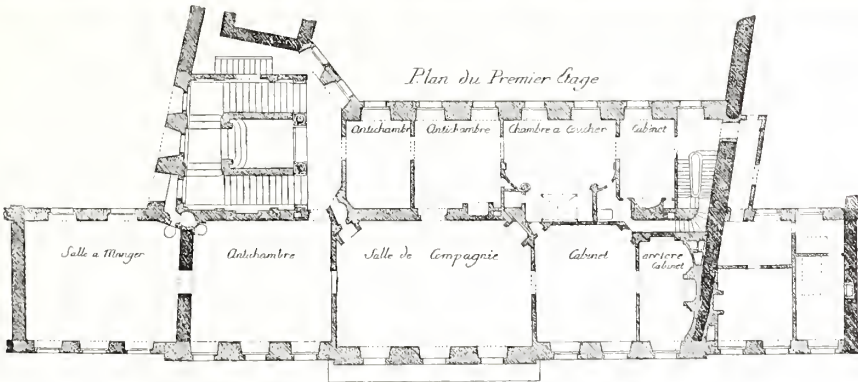 Plan du Premier Etage
Antichambre
Antichambre
Chambre a Coucher
Cabinet
Salle a Manger
Antichambre
Salle de Compagnie
Cabinet
arriere
Cabinet